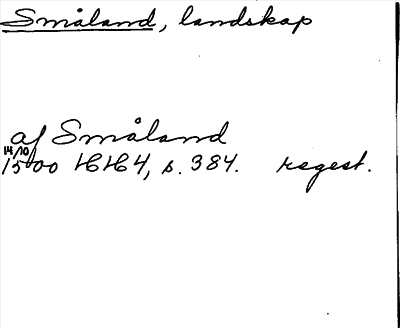 Småland, landskap
af Småland
14/10
1500 HH4, s. 384. regest.